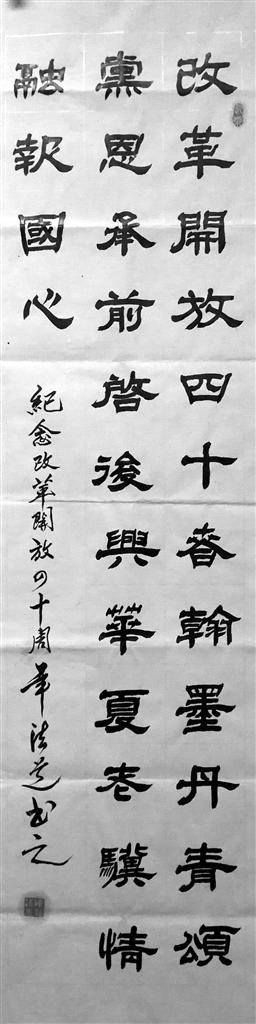 改革開放四十春翰墨丹青頌
黨恩承前啓後興華夏老驥情
融報國心
紀念改革開放四十周年法是書之